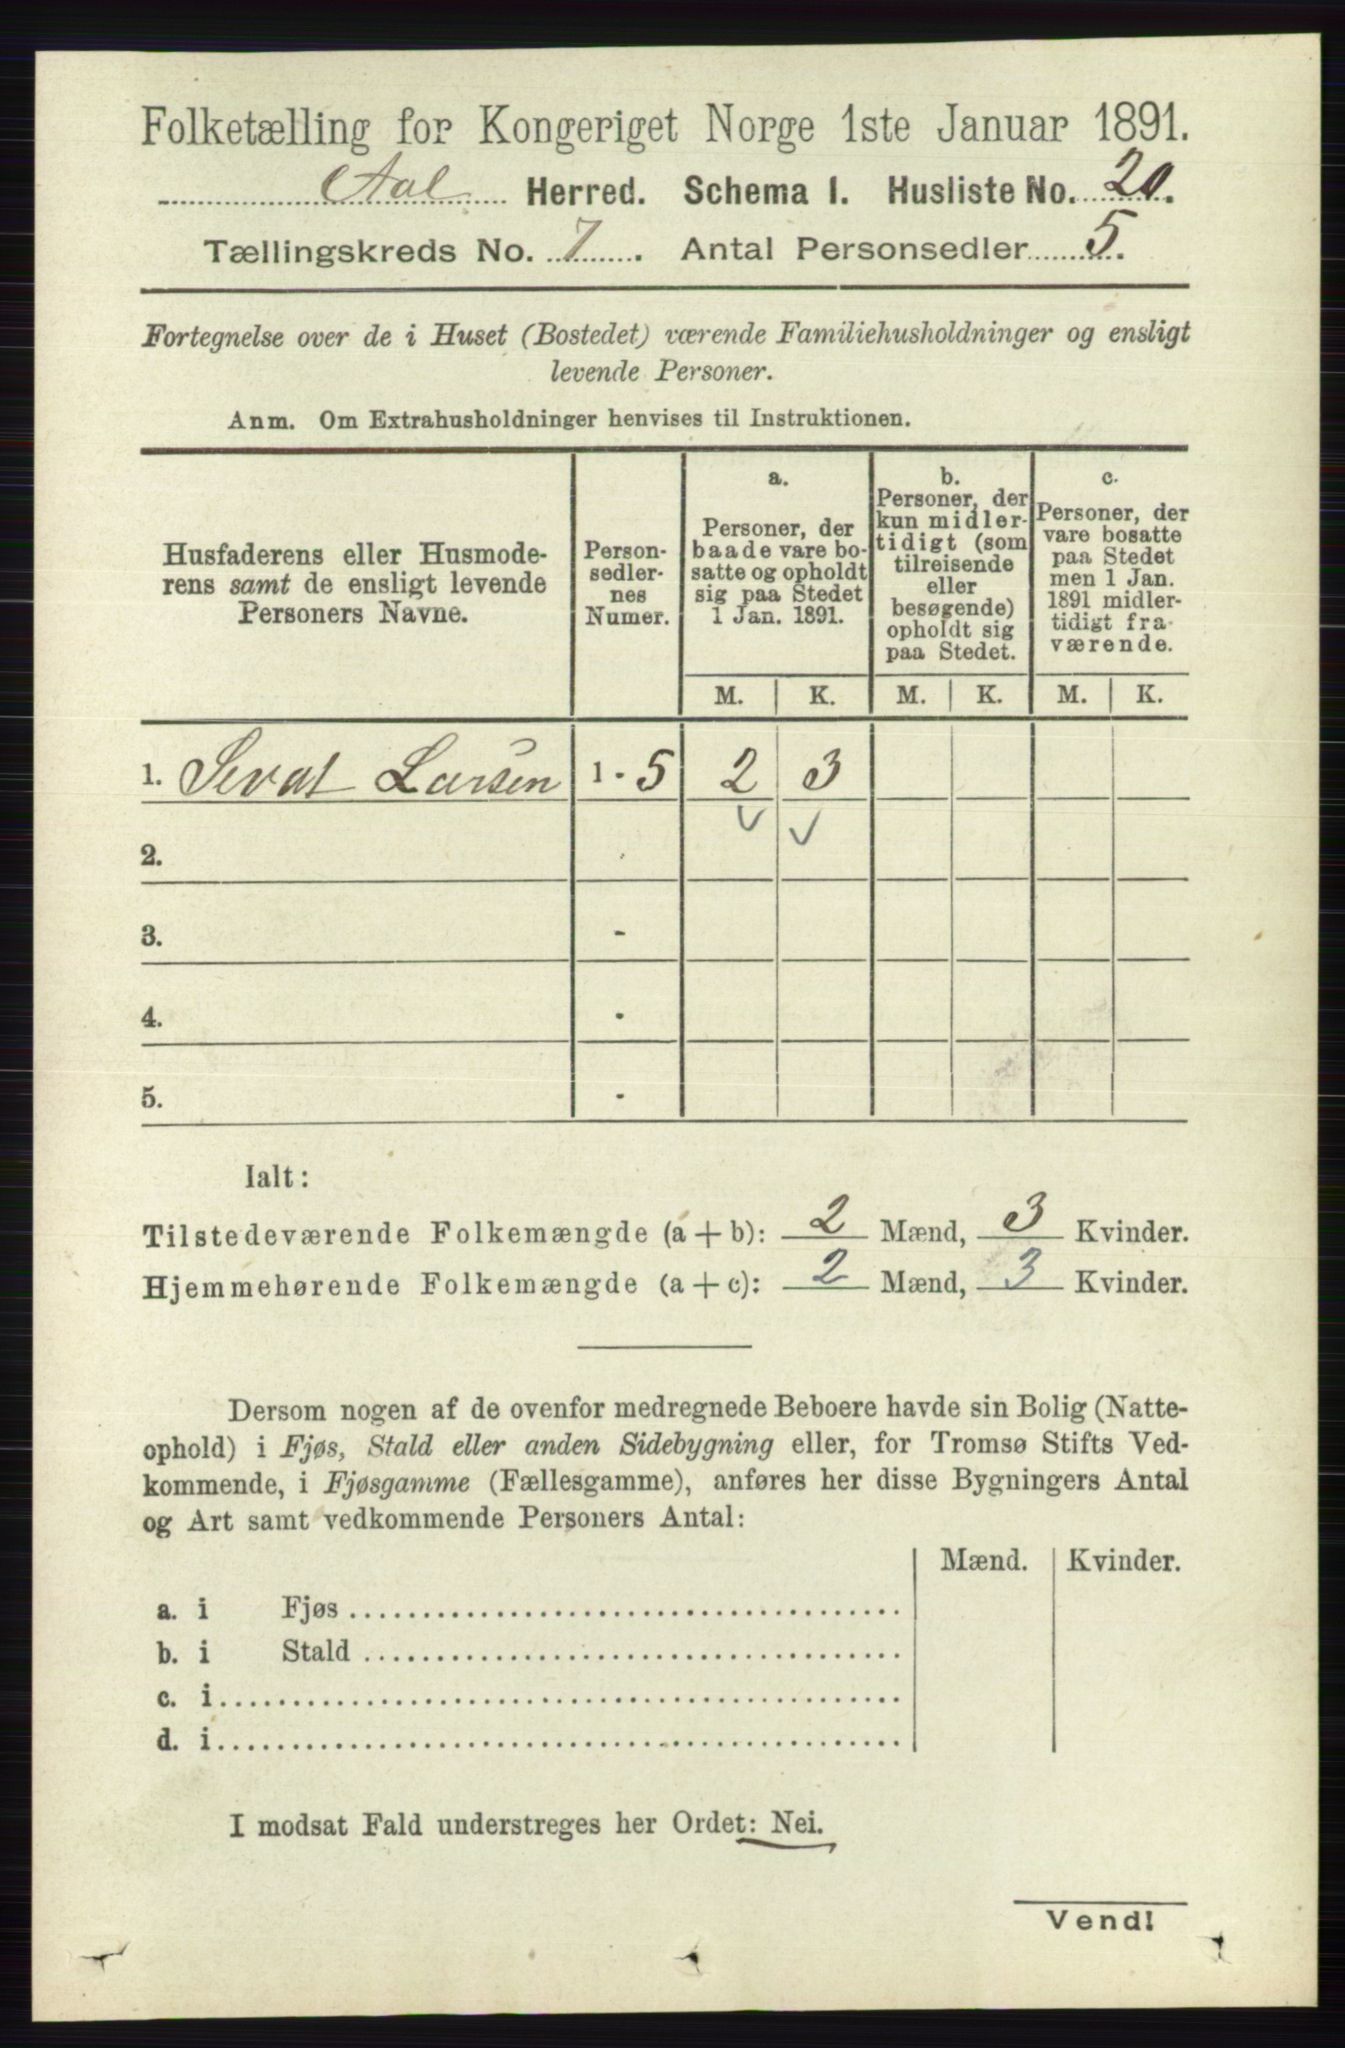 Folketælling for Kongeriget Norge 1ste Januar 1891.
Aal Herred. Schema I. Husliste No. 20.
Tællingskreds No. 7. Antal Personsedler 5.
Fortegnelse over de i Huset (Bostedet) værende Familiehusholdninger og ensligt
levende Personer.
Anm. Om Extrahusholdninger henvises til Instruktionen.
Husfaderens eller Husmode-
rens samt de ensligt levende
Personers Navne.
Person-
sedler-
nes
Numer.
a.
Personer, der
baade vare bo-
satte og opholdt
sig paa Stedet
1 Jan. 1891.
b.
Personer, der
kun midler-
tidigt (som
tilreisende
eller
besøgende)
opholdt sig
paa Stedet.
c.
Personer, der
vare bosatte
paa Stedet
men 1 Jan.
1891 midler-
tidigt fra-
værende.
M. K. M. K. M. K.
1. Sevat Larsen 1 - 5 2 3
2.
3. -
4. -
5. -
Ialt:
Tilstedeværende Folkemængde (a + b): 2 Mænd, 3 Kvinder.
Hjemmehørende Folkemængde (a + c): 2 Mænd, 3 Kvinder.
Dersom nogen af de ovenfor medregnede Beboere havde sin Bolig (Natte-
ophold) i Fjøs, Stald eller anden Sidebygning eller, for Tromsø Stifts Ved-
kommende, i Fjøsgamme (Fællesgamme), anføres her disse Bygningers Antal
og Art samt vedkommende Personers Antal:
Mænd. Kvinder.
a. i Fjøs
b. i Stald
c. i
d. i
I modsat Fald understreges her Ordet: Nei.
Vend!